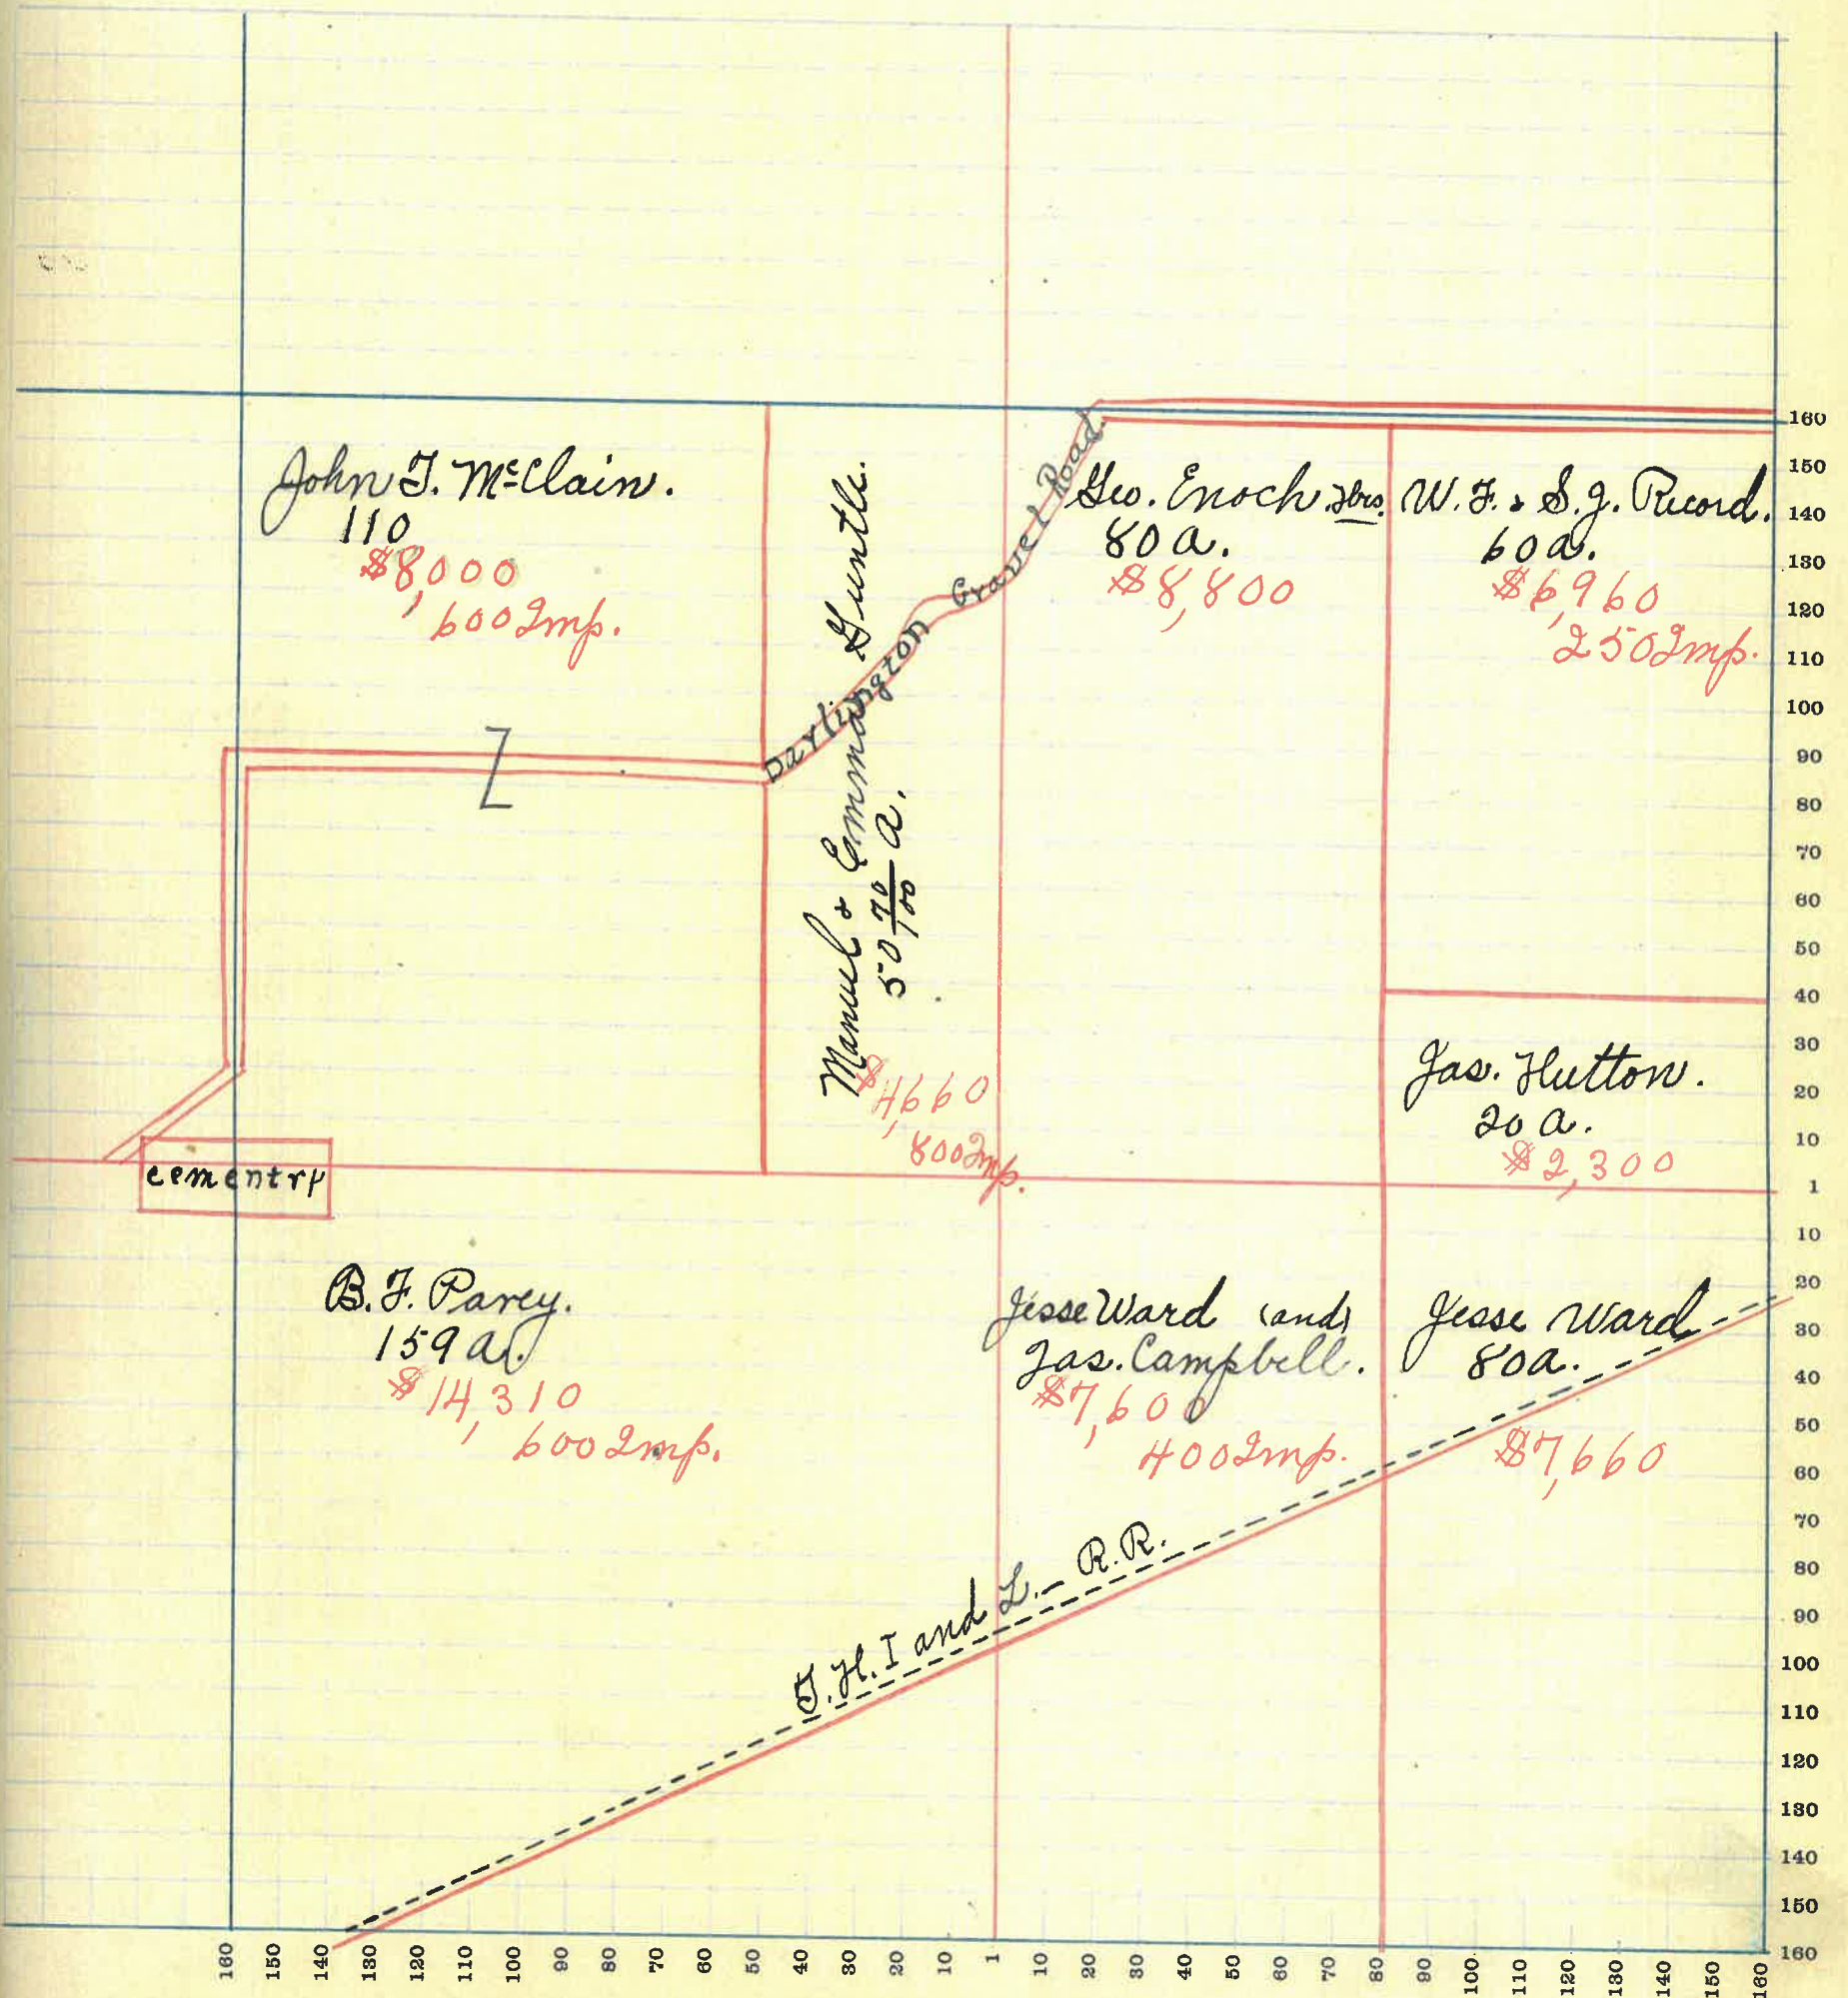 John T. McClain.
110
$8,000
600 Imp.
Manuel & Emma Guntle.
50 70/100 a.
$4660
800 Imp.
Darlington Gravel Road.
Geo. Enoch Hrs.
80 a.
$8,800
W. F. & S. J. Record.
60 a.
$6,960
250 Imp.
Z
Jas. Hutton.
20 a.
$2,300
cementry
B. F. Pavey.
159 a.
$14,310
600 Imp.
Jesse Ward (and)
Jas. Campbell.
$7,600
400 Imp.
Jesse Ward
80 a.
$7,660
T. H. I and L. - R. R.
160
150
140
130
120
110
100
90
80
70
60
50
40
30
20
10
1
10
20
30
40
50
60
70
80
90
100
110
120
130
140
150
160
160 150 140 130 120 110 100 90 80 70 60 50 40 30 20 10 1 10 20 30 40 50 60 70 80 90 100 110 120 130 140 150 160